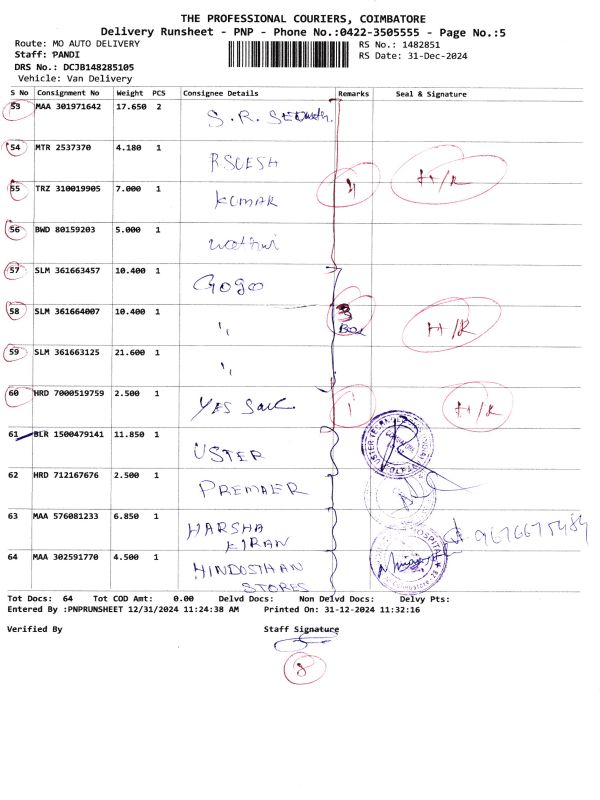 THE PROFESSIONAL COURIERS, COIMBATORE
Delivery Runsheet - PNP - Phone No.:0422-3505555 - Page No.:5
Route: MO AUTO DELIVERY
RS No.: 1482851
Staff: PANDI
RS Date: 31-Dec-2024
DRS No.: DCJB148285105
Vehicle: Van Delivery
S No Consignment No Weight PCS Consignee Details Remarks Seal & Signature
53 MAA 301971642 17.650 2 S.R.
54 MTR 2537370 4.180 1
55 TRZ 310019905 7.000 1 KUMAR 4 H/R
56 BWD 80159203 5.000 1
57 SLM 361663457 10.400 1 GOGO
58 SLM 361664007 10.400 1 ,, 3 Box H/R
59 SLM 361663125 21.600 1 ,,
60 HRD 7000519759 2.500 1 YES 1 H/R
61 BLR 1500479141 11.850 1 USTER
62 HRD 712167676 2.500 1 PREMAER
63 MAA 576081233 6.850 1 HARSHA KIRAN
64 MAA 302591770 4.500 1 HINDOSTHAN STORES
Tot Docs: 64 Tot COD Amt: 0.00 Delvd Docs: Non Delvd Docs: Delvy Pts:
Entered By :PNPRUNSHEET 12/31/2024 11:24:38 AM Printed On: 31-12-2024 11:32:16
Verified By Staff Signature
8